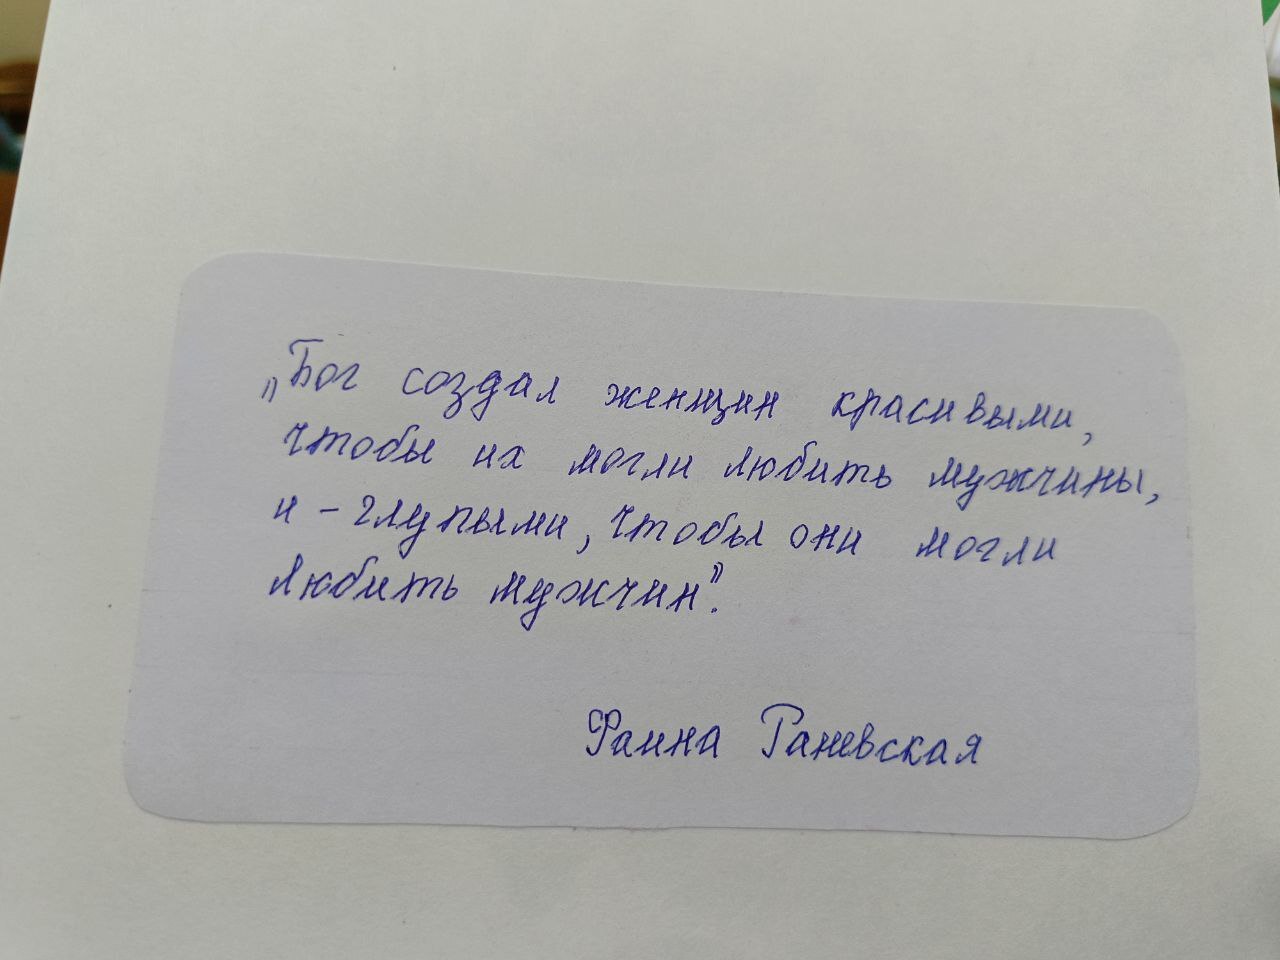 „Бог создал женщин красивыми,
чтобы их могли любить мужчины,
и - глупыми, чтобы они могли
любить мужчин".
Фаина Раневская